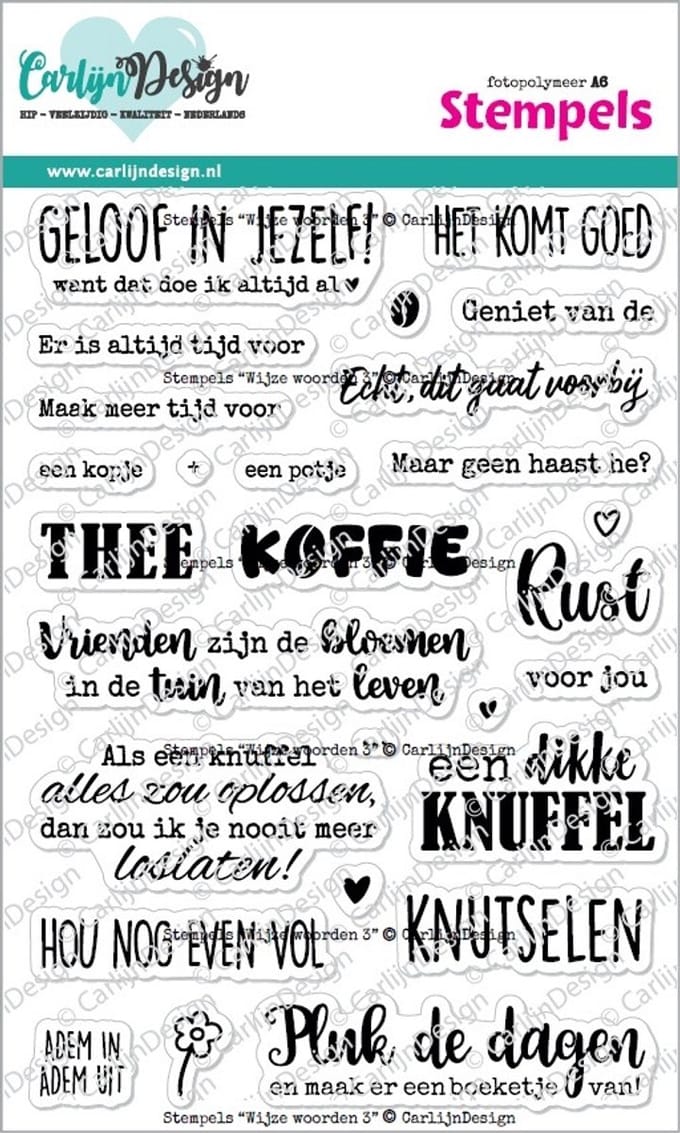 CarlijnDesign
HIP – VEELZIJDIG – KWALITEIT – NEDERLANDS
fotopolymeer A6
Stempels
www.carlijndesign.nl
Stempels "Wijze woorden 3" © CarlijnDesign
GELOOF IN JEZELF!
want dat doe ik altijd al
HET KOMT GOED
Geniet van de
Er is altijd tijd voor
Stempels "Wijze woorden 3" © CarlijnDesign
Echt, dit gaat voorbij
Maak meer tijd voor
een kopje
+
een potje
Maar geen haast he?
THEE
KOFFIE
Stempels "Wijze woorden 3" © CarlijnDesign
Rust
voor jou
Vrienden zijn de bloemen
in de tuin van het leven
Stempels "Wijze woorden 3" © CarlijnDesign
Als een knuffel
alles zou oplossen,
dan zou ik je nooit meer
loslaten!
een dikke
KNUFFEL
HOU NOG EVEN VOL
KNUTSELEN
Stempels "Wijze woorden 3" © CarlijnDesign
ADEM IN
ADEM UIT
Pluk de dagen
en maak er een boeketje van!
Stempels "Wijze woorden 3" © CarlijnDesign